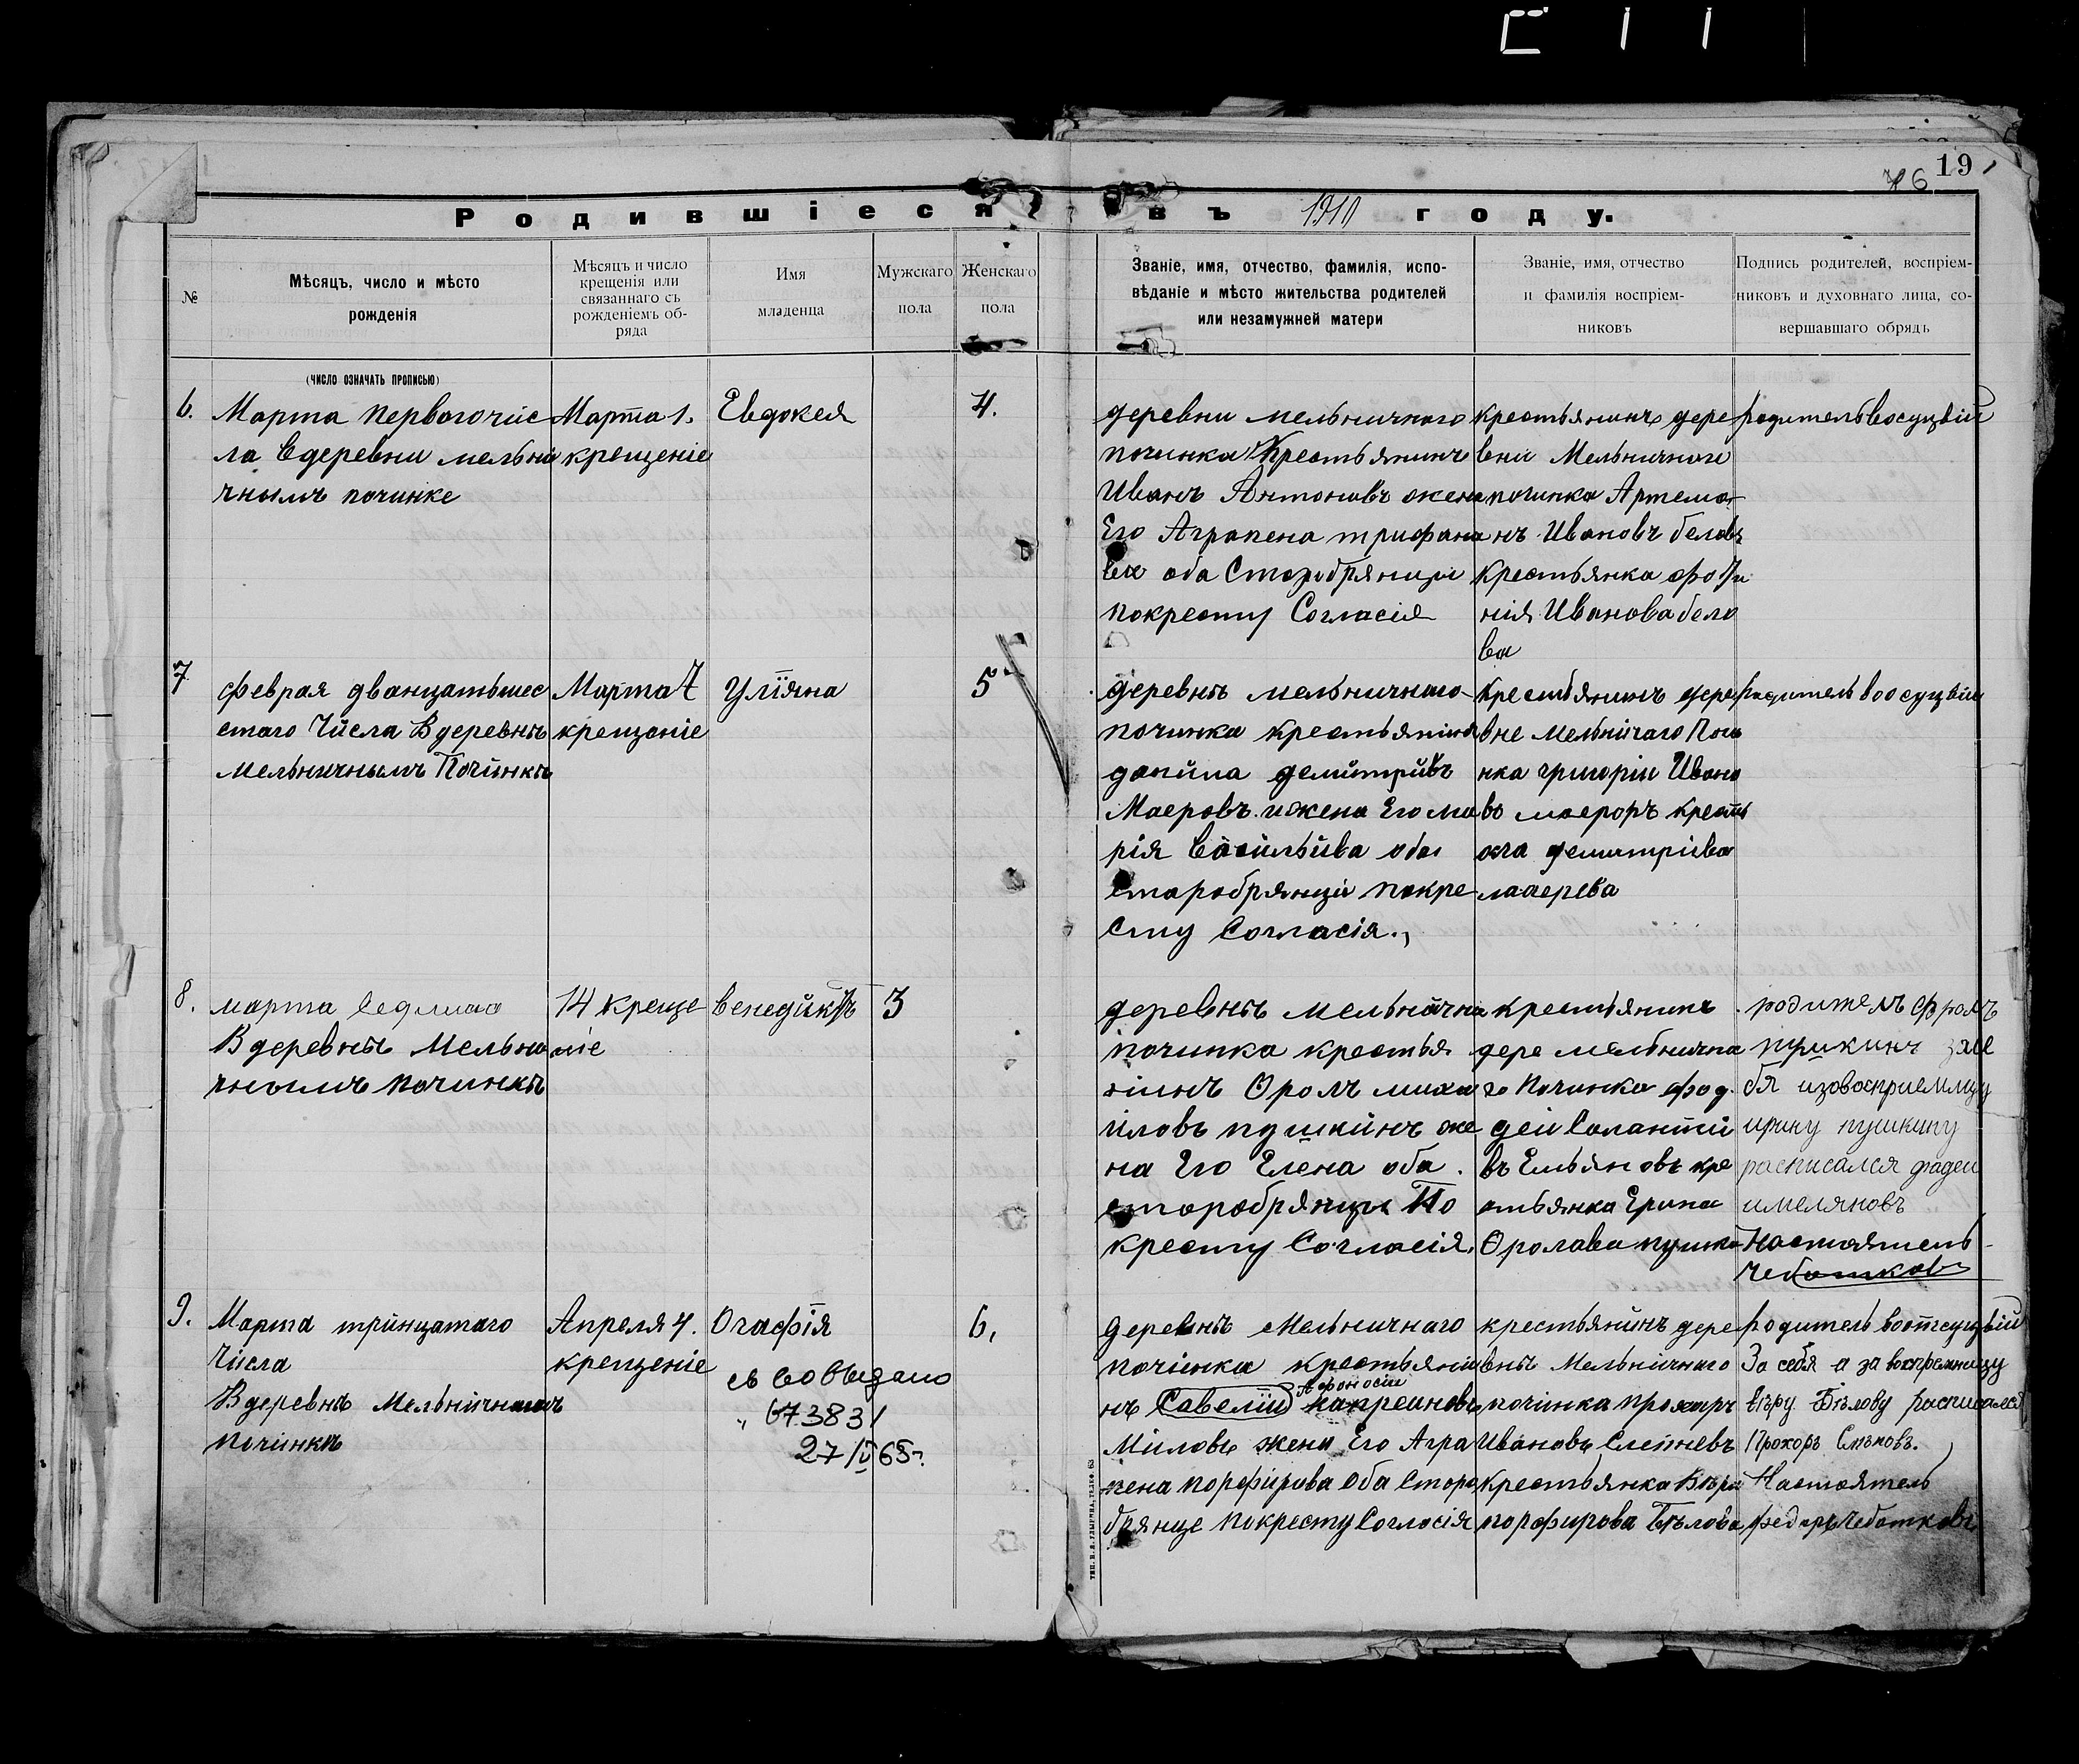 19
76
Родившіеся въ 1910 году.
№
Мѣсяцъ, число и мѣсто
рожденія
Мѣсяцъ и число
крещенія или
связаннаго съ
рожденіемъ об-
ряда
Имя
младенца
Мужскаго
пола
Женскаго
пола
Званіе, имя, отчество, фамилія, испо-
вѣданіе и мѣсто жительства родителей
или незамужней матери
Званіе, имя, отчество
и фамилія воспріем-
никовъ
Подпись родителей, воспріем-
никовъ и духовнаго лица, со-
вершавшаго обрядъ
(число означать прописью)
6.
Марта первогочис
ла Вдеревни мельни
чнымъ починке
Марта 1.
крещеніе
Евдокея
4.
деревни мельничного
починка Крестьянинъ
Иванъ Антоновъ жена
Его Аграпена трифана
ва оба Старобрянцы
покресту Согласія
крестьянинъ дере
вни Мельничного
починка Артемо
нъ Ивановъ беловъ
Крестьянка
нія Иванова бело
ва
7
феврая дванцатьшес
таго Числа Вдеревнѣ
Мельничнымъ Починкѣ
Марта 7
крещеніе
Улїяна
5
деревнѣ мельничнаго
починка крестьянинъ
данила демитривъ
Маеровъ ижена Его ма
рія Васильива оба
Старобрянци покре
сту Согласія.
крестьянинъ дере
вне мельничаго Почи
нка григории Ивано
въ маероръ крестъ
демитріева
маерева
8.
марта Седмаго
В деревнѣ Мельни
чнымъ починкѣ
14 креще
ніе
венедиктъ
3
деревнѣ Мельнична
починка крестья
нинъ Фролъ миха
иловъ пушкинъ же
на Его Елена оба
старобрянцы По
кресту Согласія.
крестьянинъ
дере мельнична
го Починка фод
деи
въ Емьяновъ кре
стьянка Ерина
Фролава пушки
родитель фролъ
пушкинъ засе
бя изовосприемницу
ирину пушкину
расписался фадеи
имеляновъ
Настоятель
Чеботковъ
9.
Марта тринцатаго
Числа
Вдеревнѣ Мельничномъ
починкѣ
Апреля 4.
крещеніе
Огафія
св во выдано
673831
27/IV 65г.
6,
деревнѣ Мельничнаго
починка крестьяни
нъ Савелій Афоносии
Миловъ жена Его Агра
пена порфирова Оба Старо
брянце покресту Согласія
крестьянинъ дере
внѣ Мельничнаго
починка прохоръ
Ивановъ
Крестьянка Вѣра
порфирова Бѣлова
За себя а за воспремницу
вѣру Бѣлову расписался
Прохоръ
Настоятель
федоръ Чеботковъ